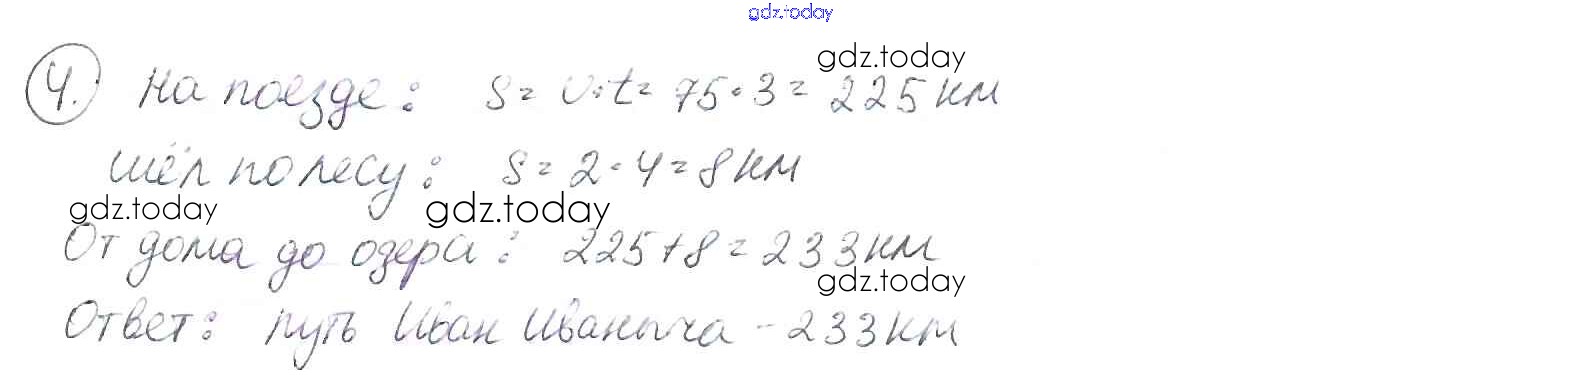 gdz.today
gdz.today
4. На поезде: S = v·t = 75·3 = 225 км
Шёл по лесу: S = 2·4 = 8 км
gdz.today gdz.today
От дома до озера: 225 + 8 = 233 км
gdz.today
Ответ: путь Иван Иваныча - 233 км